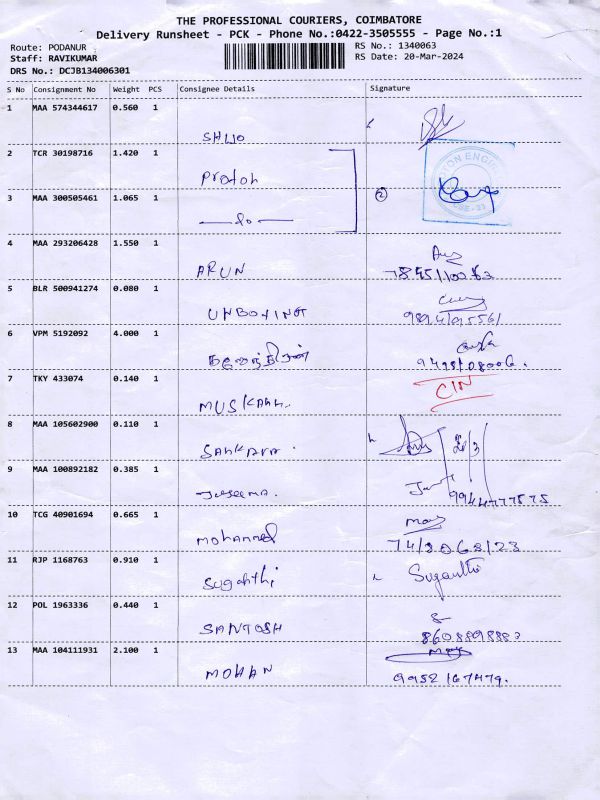 THE PROFESSIONAL COURIERS, COIMBATORE
Delivery Runsheet - PCK - Phone No.:0422-3505555 - Page No.:1
Route: PODANUR RS No.: 1340063
Staff: RAVIKUMAR RS Date: 20-Mar-2024
DRS No.: DCJB134006301
S No Consignment No Weight PCS Consignee Details Signature
1 MAA 574344617 0.560 1
SHIJO
2 TCR 30198716 1.420 1
Proton
3 MAA 300505461 1.065 1 2
Do
4 MAA 293206428 1.550 1
ARUN
5 BLR 500941274 0.080 1
UNBOXING
6 VPM 5192092 4.000 1
7 TKY 433074 0.140 1
MUSKAAN CIN
8 MAA 105602900 0.110 1
SANKARA
9 MAA 100892182 0.385 1
9944777575
10 TCG 40901694 0.665 1
Mohammed
11 RJP 1168763 0.910 1
Suganthi Suganthi
12 POL 1963336 0.440 1
SANTOSH
13 MAA 104111931 2.100 1
MOHAN 9952167479.